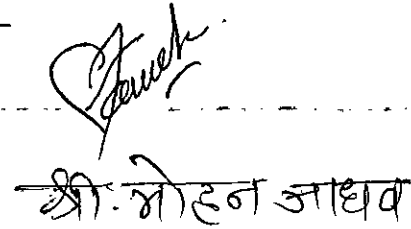 श्री. मोहन जाधव